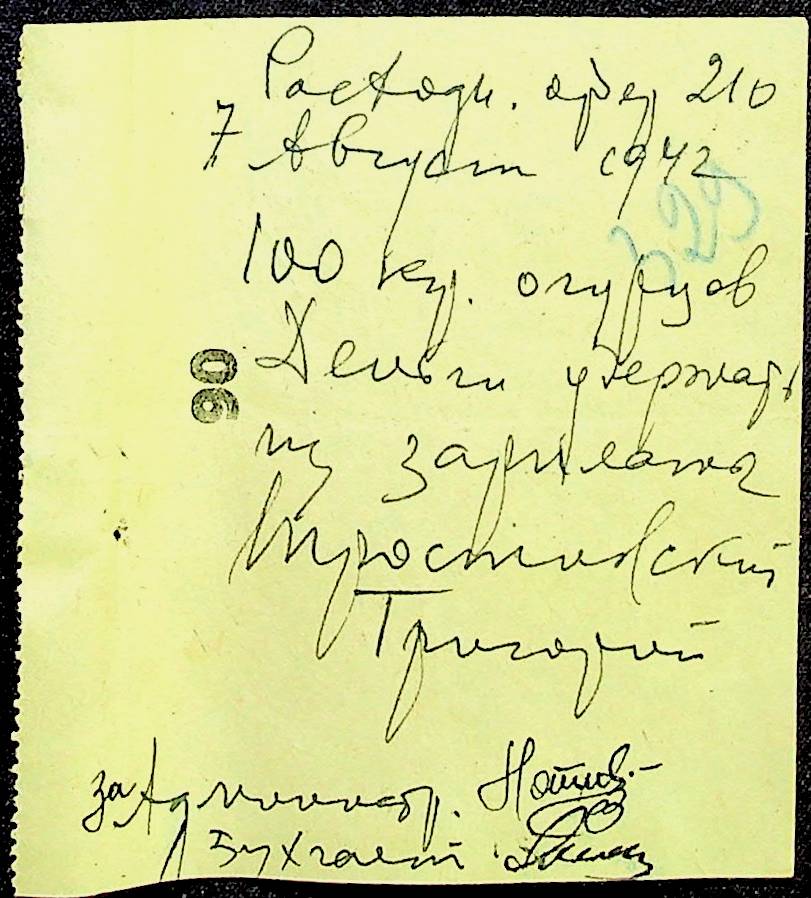 Расходн. ордер 210
7 Август 1942
329
100 кг. огурцов
90
Деньги удержать
из зарплаты
Тростповский
Григорий
за Администр.
Бухгалт.